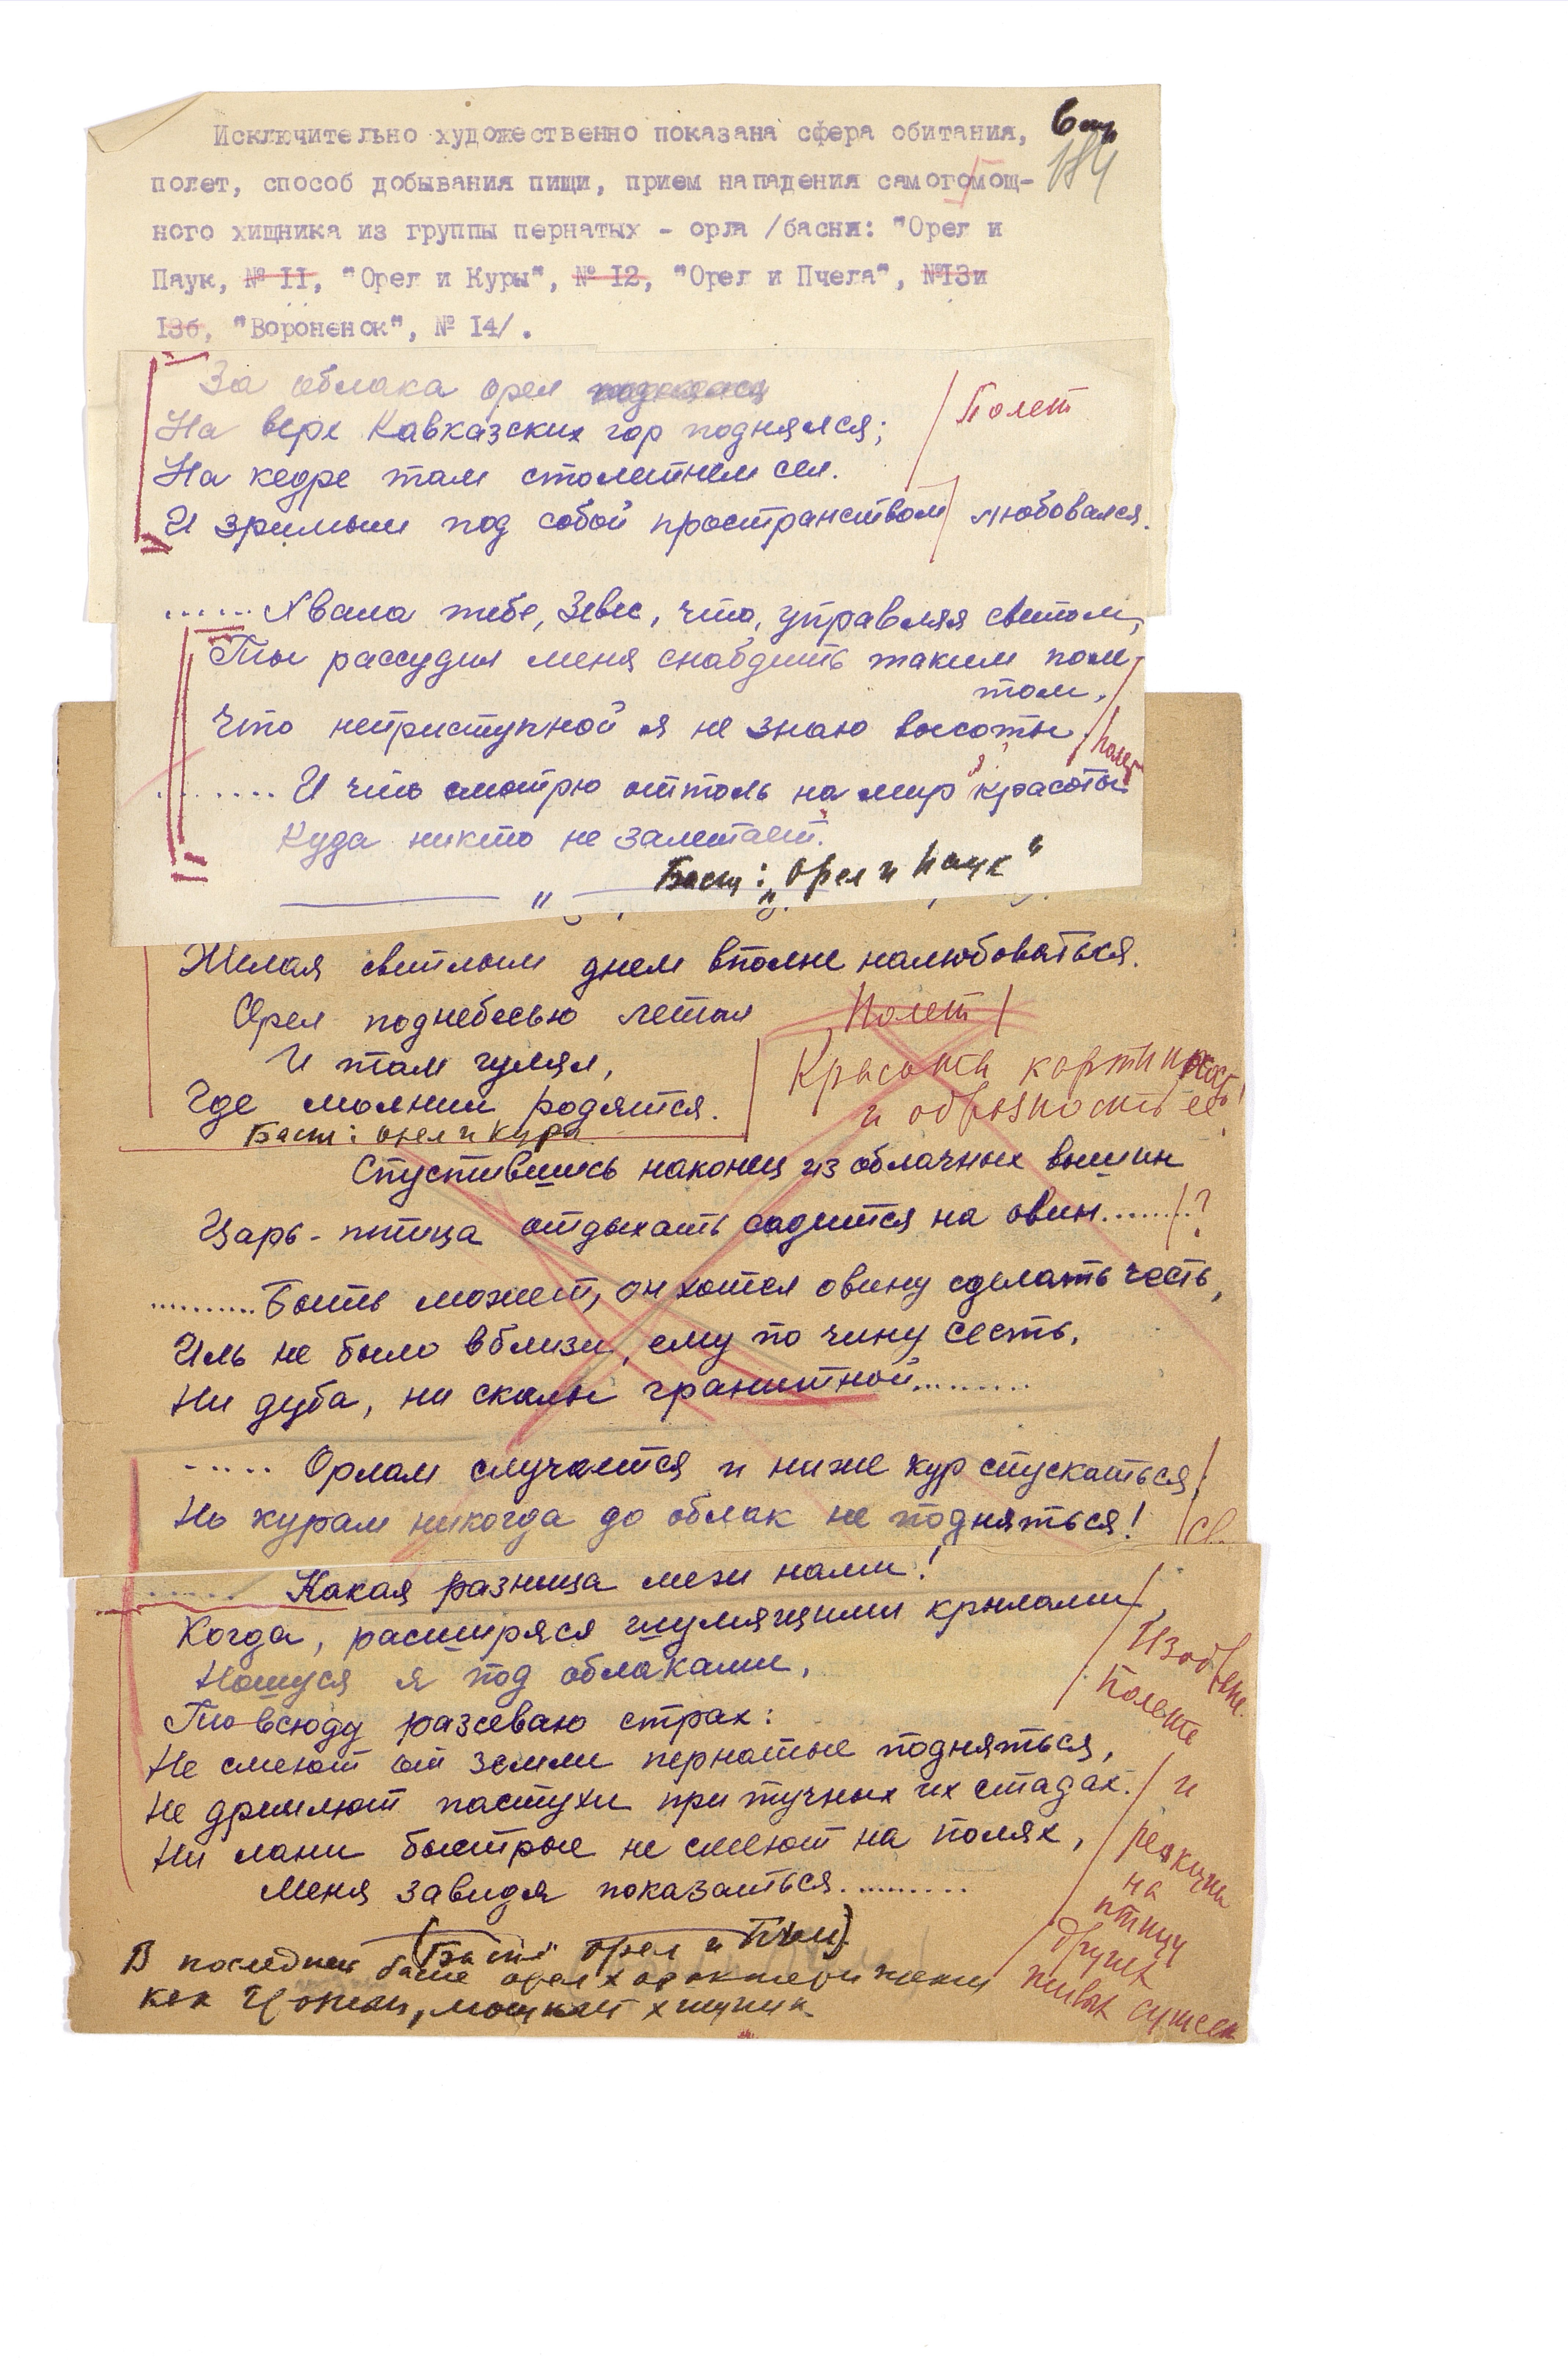 Исключительно художественно показана сфера обитания,
6
184
полет, способ добывания пищи, прием нападения самого мощ-
ного хищника из группы пернатых - орла /басни: "Орел и
Паук, № 11, "Орел и Куры", № 12, "Орел и Пчела", №13и
13б, "Вороненок", № 14/.
За облака орел
На верх Кавказских гор поднялся;
Полет
На кедре там столетнем сел.
И зримым под собой пространством любовался.
...... Хвала тебе, Зевес, что, управляя светом,
Ты рассудил меня снабдить таким поле-
том,
Что неприступной я не знаю высоты
полет
........ И что смотрю оттоль на мир красоты
Куда никто не залетает.
" Басн: „Орел и Паук"
Желая светлым днем вполне налюбоваться.
Орел поднебесью летал
Полет
И там гулял,
Красота картинность
Где молнии родятся.
и образность ее!
Басн: орел и куры
Спустившись наконец из облачных вышин
Царь-птица отдыхать садится на овин........?
..........Быть может, он хотел овину сделать честь,
Иль не было вблизи, ему по чину сесть,
Ни дуба, ни скалы гранитной.........
..... Орлам случается и ниже кур спускаться;
Но курам никогда до облак не подняться!
..... Какая разница меж нами!
Когда, расширяся шумящими крылами,
Ношуся я под облаками,
Полета
То всюду разсеваю страх:
Не смеют от земли пернатые подняться,
Не дремлют пастухи при тучных их стадах.
и
Ни лани быстрые не смеют на полях,
реакции
Меня завидя показаться.........
на
птиц
(Басн: орел и Пчел)
других
В последней басне орел
живых сущест
как